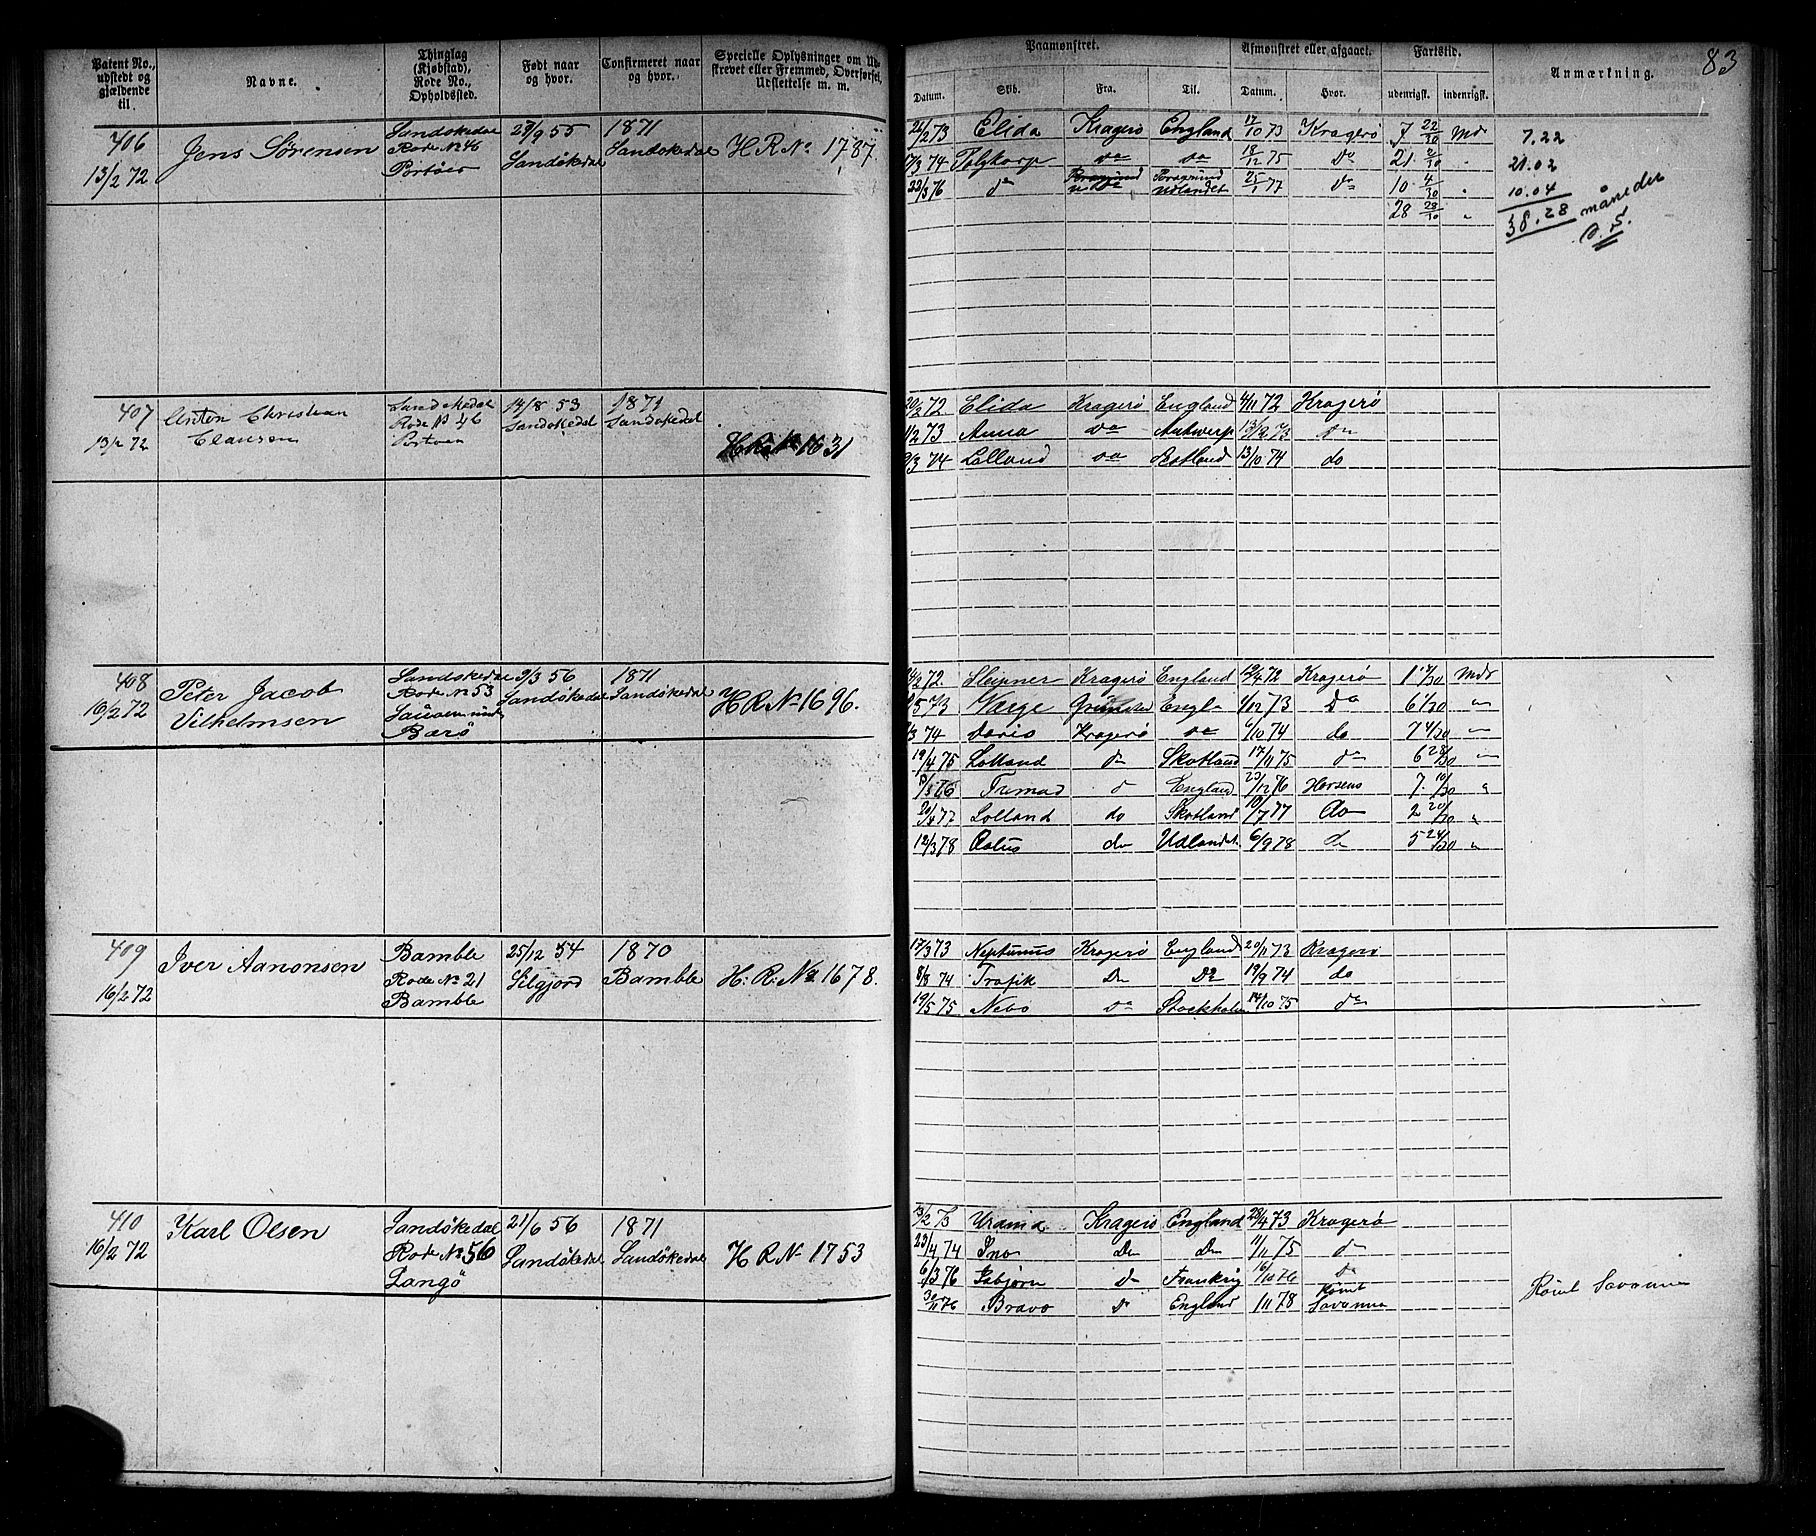 83
Patent No., udstedt og gjældende til.
Navne.
Thinglag (Kjøbstad), Rode No., Opholdssted.
Født naar og hvor.
Confirmeret naar og hvor.
Specielle Oplysninger om Udskrevet eller Fremmed, Overførsel, Udslettelse m. m.
Paamønstret.
Datum. Skib. Fra. Til.
Afmønstret eller afgaaet.
Datum. Hvor.
Fartstid.
udenrigsk. indenrigsk.
Anmærkning.
406
13/2 72
Jens Sörensen
Sandökedal
Rode No 46
Portöer
27/9 55
Sandökedal
1871
Sandökedal
H R No 1787.
26/2 73 Elida Kragerö England 17/10 73 Kragerö 7 22/30 Md
17/3 74 Polykarp do do 18/12 75 do 21 2/30 "
22/3 76 do Udlandet 25/1 77 do 10 4/30 "
28 28/30 "
7.22
21.02
10.04
38.28 måneder
407
13/2 72
Anton Christian
Clausen
Sandökedal
Rode No 46
Portöer
14/8 53
Sandökedal
1871
Sandökedal
H R No 1631
20/2 72 Elida Kragerö England 4/11 72 Kragerö
1/2 73 Anna do Antwerp 13/12 73 do
9/3 74 Lolland do Estland 13/10 74 do
408
16/2 72
Peter Jacob
Vilhelmsen
Sandökedal
Rode No 53
Barö
9/3 56
Sandökedal
1871
Sandökedal
H R No 1696.
24/2 72. Kragerö England 19/4 72 Kragerö 1 Mdr
5 73 Varge Engl 1/12 73 Do 6 1/30 "
3 74 Doris Kragerö do 6/10 74 do 7 4/30 "
19/4 75 Lolland do Skotland 17/11 75 do 6 28/30 "
8/5 76 do England 23/12 76 Horsens 7. 10/30 "
20/4 77 Lolland do Skotland 10/7 77 do 2 20/30 "
12/3 78 do Udlandet 6/9 78 do 5 24/30 "
409
16/2 72
Iver Aanonsen
Bamble
Rode No 21
Bamble
25/12 54
Silgjord
1870
Bamble
H. R. No 1678.
17/3 73 Neptunus Kragerö England 20/11 73 Kragerö
8/3 74 Trafik Do Do 19/9 74 do
19/5 75. Nebo do Stockholm 14/10 75 do
410
16/2 72
Karl Olsen
Sandökedal
Rode No 56
Langö
21/6 56
Sandökedal
1871
Sandökedal
H R No 1753
13/2 73 Urania Kragerö England 28/4 73 Kragerö
23/4 74 Ino Do Do 1/11 75 do
6/3 76 Isbjörn do Frankrig 16/10 76 do
30/11 76 Bravo do England 1/11 78 Römt Savanna
Römt Savanna